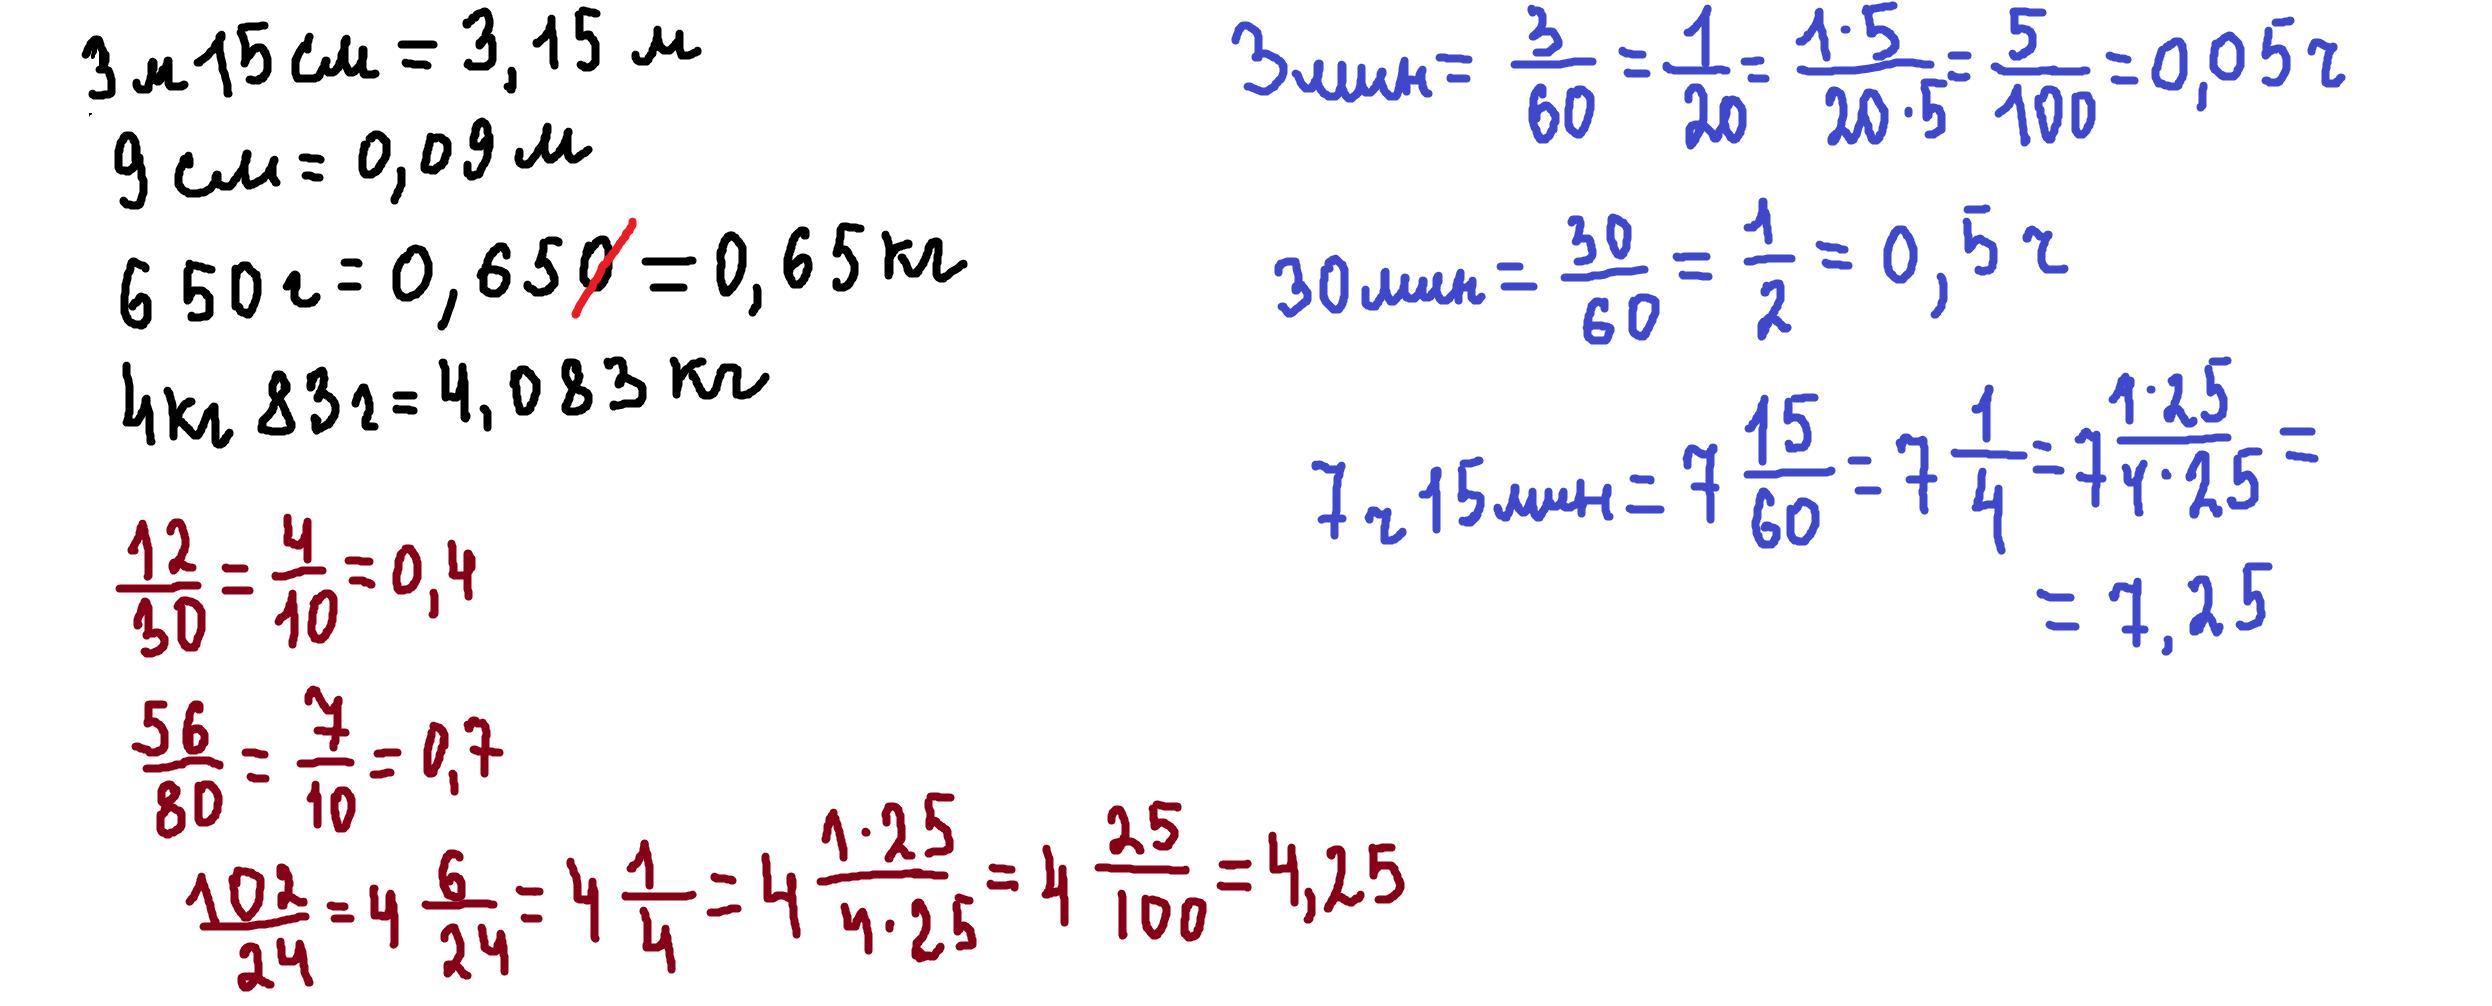 3 м 15 см = 3,15 м
9 см = 0,09 м
650 г = 0,650 = 0,65 кг
4 кг 83 г = 4,083 кг
12/30 = 4/10 = 0,4
56/80 = 7/10 = 0,7
102/24 = 4 6/24 = 4 1/4 = 4 1·25/4·25 = 4 25/100 = 4,25
3 мин = 3/60 = 1/20 = 1·5/20·5 = 5/100 = 0,05 ч
30 мин = 30/60 = 1/2 = 0,5 ч
7 ч 15 мин = 7 15/60 = 7 1/4 = 7 1·25/4·25 =
= 7,25